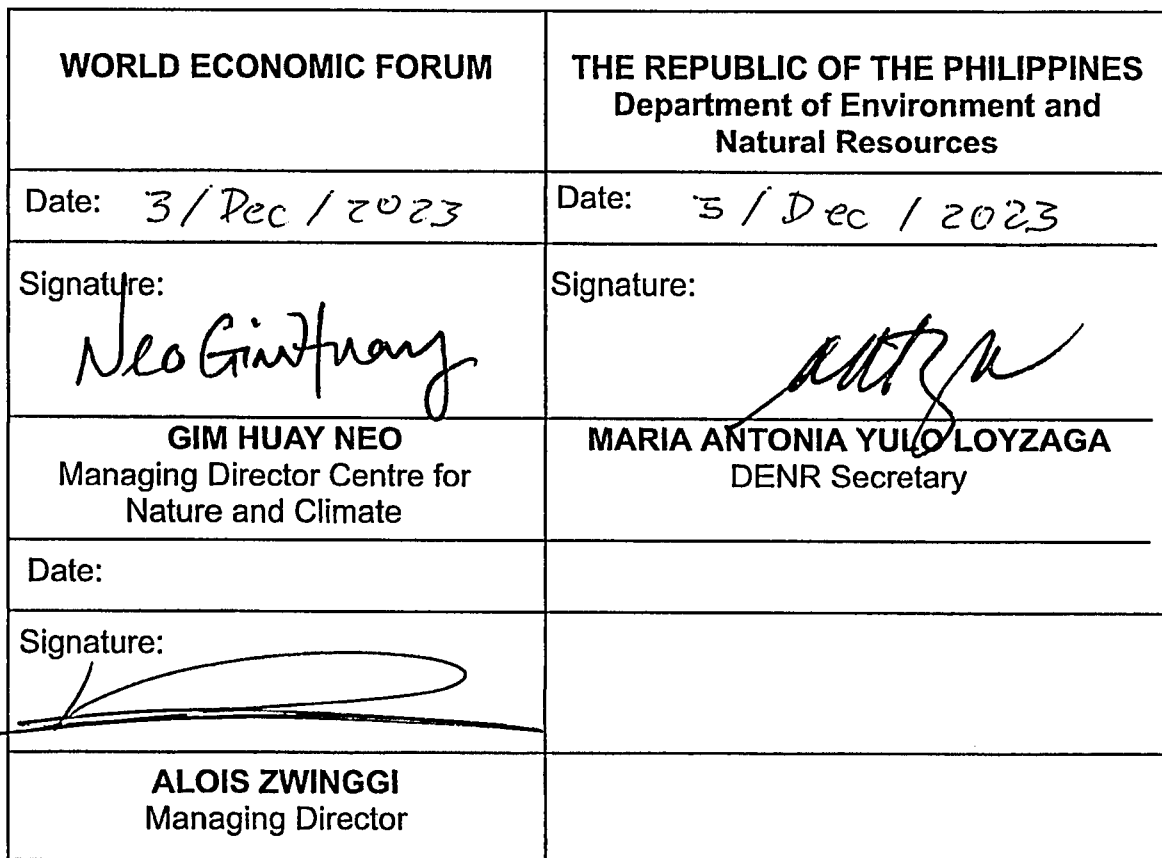 WORLD ECONOMIC FORUM
THE REPUBLIC OF THE PHILIPPINES
Department of Environment and
Natural Resources
Date: 3/Dec/2023
Date: 3/Dec/2023
Signature:
Neo Gim Huay
Signature:
GIM HUAY NEO
Managing Director Centre for
Nature and Climate
MARIA ANTONIA YULO LOYZAGA
DENR Secretary
Date:
Signature:
ALOIS ZWINGGI
Managing Director